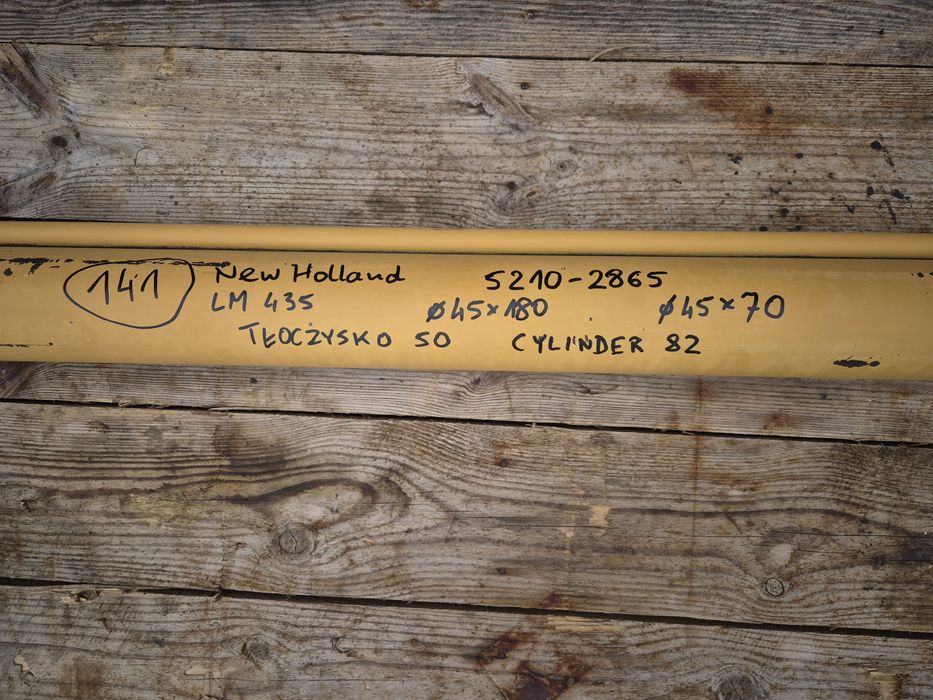 141 New Holland 5210-2865
LM 435 ø45×180 ø45×70
TŁOCZYSKO 50 CYLINDER 82